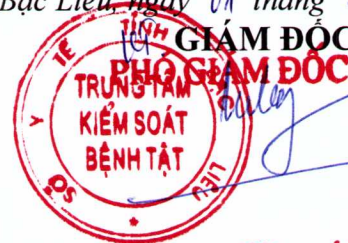 Bạc Liêu, ngày 01 tháng
GIÁM ĐỐC
PHÓ GIÁM ĐỐC
SỞ Y TẾ TỈNH LIÊU
TRUNG TÂM
KIỂM SOÁT
BỆNH TẬT